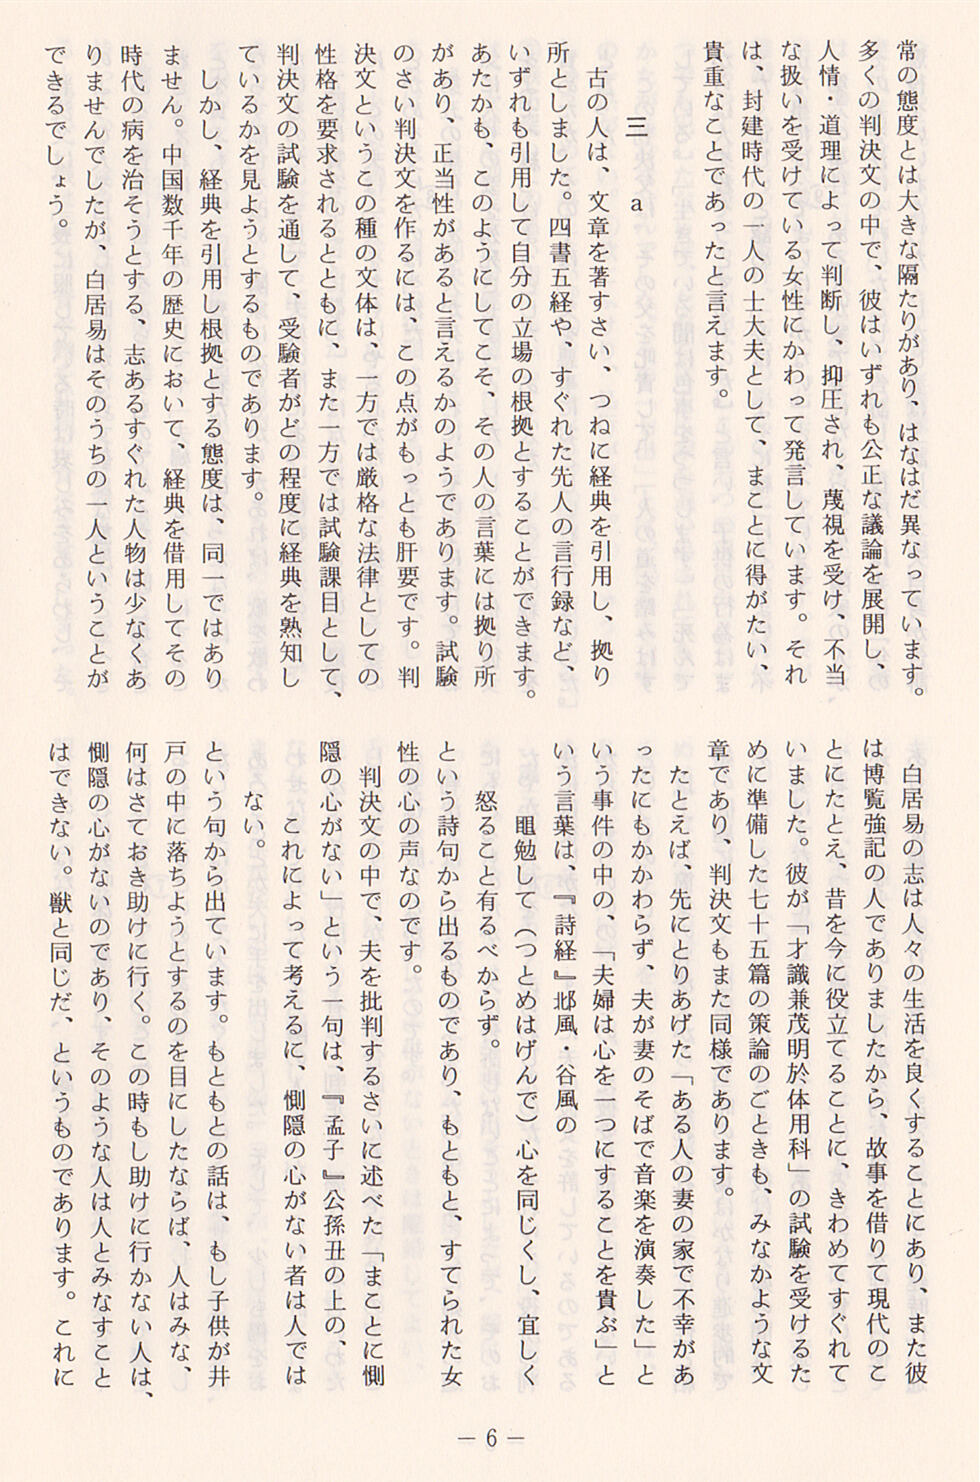 常の態度とは大きな隔たりがあり、はなはだ異なっています。
多くの判決文の中で、彼はいずれも公正な議論を展開し、
人情・道理によって判断し、抑圧され、蔑視を受け、不当
な扱いを受けている女性にかわって発言しています。それ
は、封建時代の一人の士大夫として、まことに得がたい、
貴重なことであったと言えます。
三 a
古の人は、文章を著すさい、つねに経典を引用し、拠り
所としました。四書五経や、すぐれた先人の言行録など、
いずれも引用して自分の立場の根拠とすることができます。
あたかも、このようにしてこそ、その人の言葉には拠り所
があり、正当性があると言えるかのようであります。試験
のさい判決文を作るには、この点がもっとも肝要です。判
決文というこの種の文体は、一方では厳格な法律としての
性格を要求されるとともに、また一方では試験課目として、
判決文の試験を通して、受験者がどの程度に経典を熟知し
ているかを見ようとするものであります。
しかし、経典を引用し根拠とする態度は、同一ではあり
ません。中国数千年の歴史において、経典を借用してその
時代の病を治そうとする、志あるすぐれた人物は少なくあ
りませんでしたが、白居易はそのうちの一人ということが
できるでしょう。
白居易の志は人々の生活を良くすることにあり、また彼
は博覧強記の人でありましたから、故事を借りて現代のこ
とにたとえ、昔を今に役立てることに、きわめてすぐれて
いました。彼が「才識兼茂明於体用科」の試験を受けるた
めに準備した七十五篇の策論のごときも、みなかような文
章であり、判決文もまた同様であります。
たとえば、先にとりあげた「ある人の妻の家で不幸があ
ったにもかかわらず、夫が妻のそばで音楽を演奏した」と
いう事件の中の、「夫婦は心を一つにすることを貴ぶ」と
いう言葉は、『詩経』邶風・谷風の
黽勉して（つとめはげんで）心を同じくし、宜しく
怒ること有るべからず。
という詩句から出るものであり、もともと、すてられた女
性の心の声なのです。
判決文の中で、夫を批判するさいに述べた「まことに惻
隠の心がない」という一句は、『孟子』公孫丑の上の、
これによって考えるに、惻隠の心がない者は人では
ない。
という句から出ています。もともとの話は、もし子供が井
戸の中に落ちようとするのを目にしたならば、人はみな、
何はさておき助けに行く。この時もし助けに行かない人は、
惻隠の心がないのであり、そのような人は人とみなすこと
はできない。獣と同じだ、というものであります。これに
— 6 —